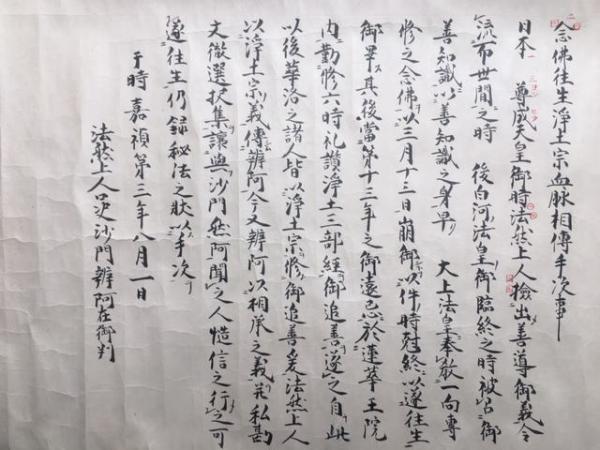 念佛往生浄土宗血脉相傳手次事
日本 尊成天皇御時法然上人撿出善導御義令
流布世間之時 後白河法皇御臨終之時被召御
善知識以善知識之身早 大上法皇奉教一向專
修之念佛以三月十三日崩御以件時尅終以遂往生
御畢其後當第十三年之御遠忌於蓮華王院
内勤修六時礼讃浄土三部經御追善遂之自此
以後華洛之諸人皆以浄土宗修御追善爰法然上人
以浄土宗義傳辨阿今又辨阿以相承之義并私勘
文徹選択集讓與沙門然阿聞之人慥信之行之可
遂往生仍録秘法之状以手次
于時嘉禎第三年八月一日
法然上人沙門辨阿在御判